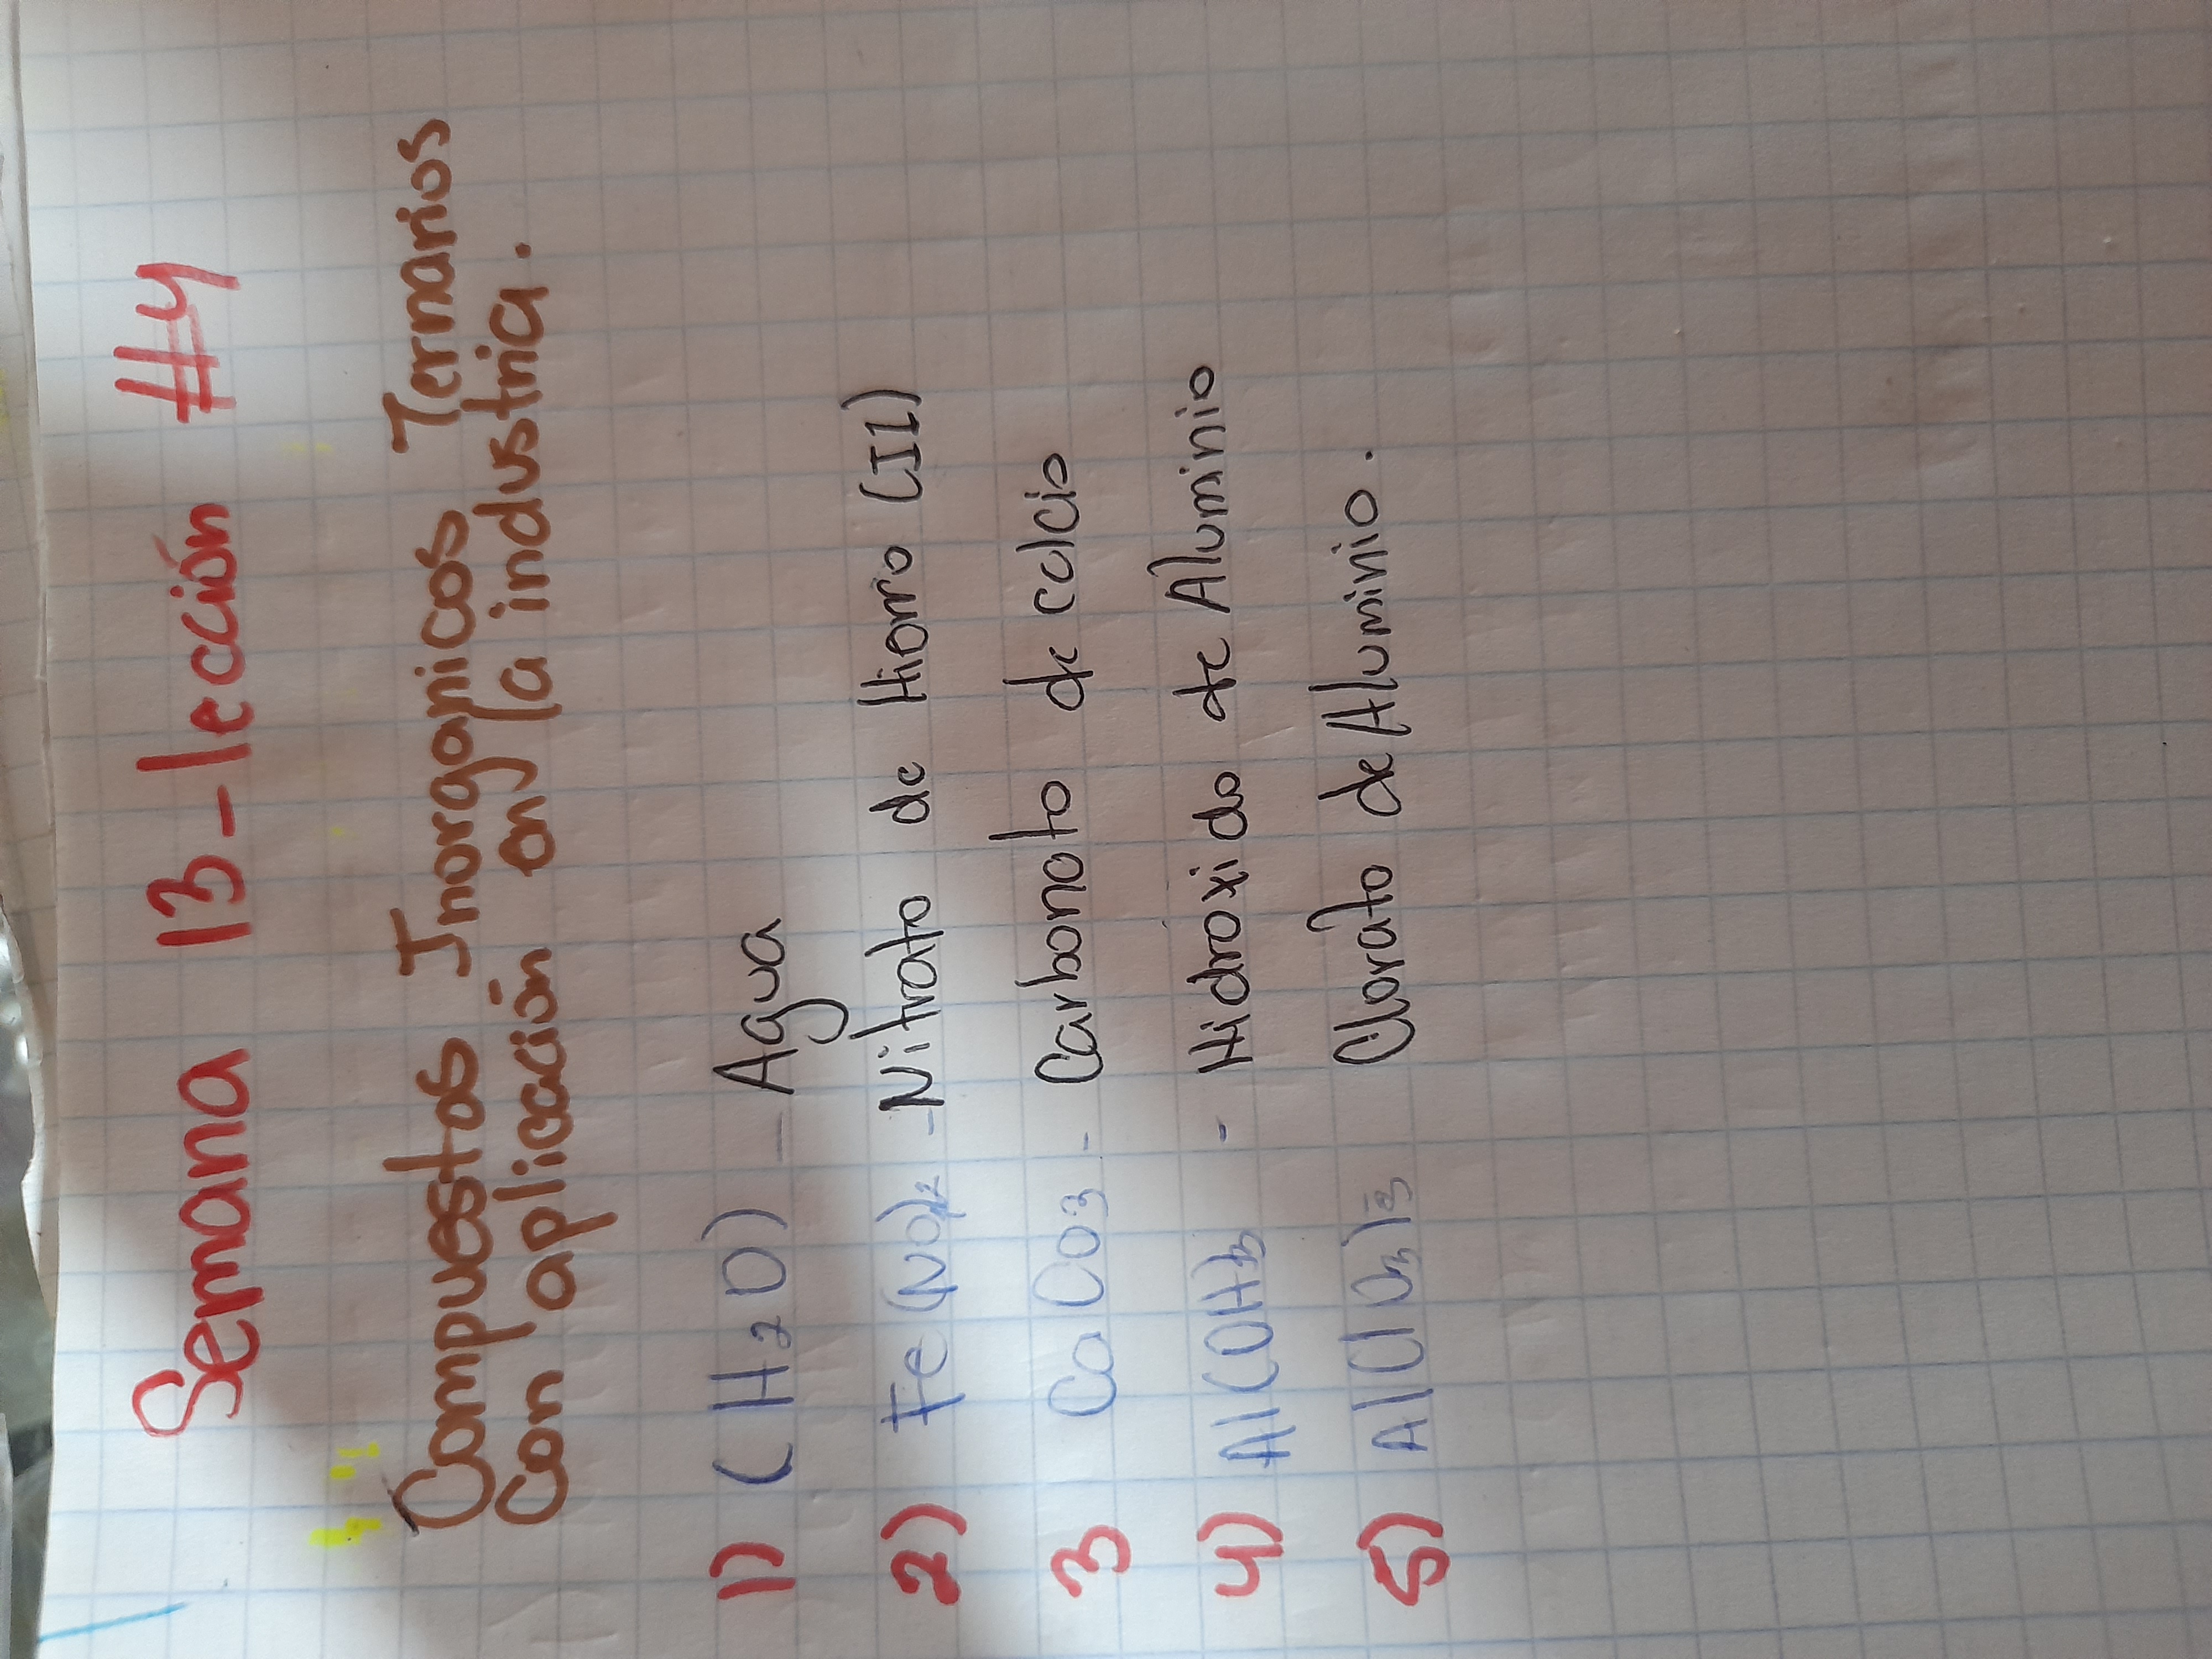 Semana 13-lección #4
Compuestos Inorganicos Ternarios
con aplicación en la industria.
1) (H2O) - Agua
2) Fe(NO3)2 - Nitrato de Hierro (II)
3 CaCo3 - Carbonato de calcio
4) Al(OH)3 - Hidroxido de Aluminio
5) Al(ClO3)3 Clorato de Aluminio.